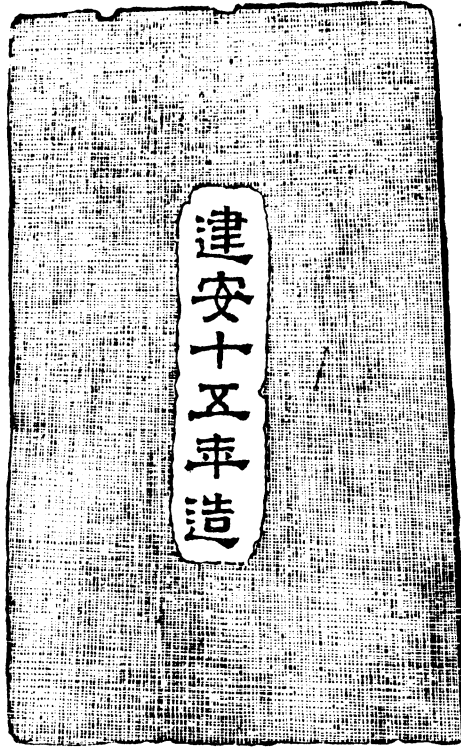 建安十五年造